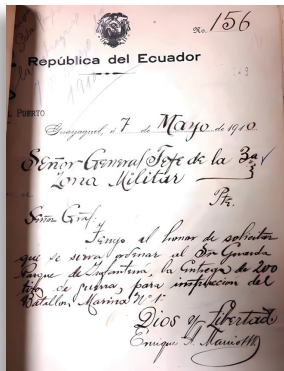 No. 156
República del Ecuador
L PUERTO
Guayaquil, á 7 de Mayo de 1910.
Señor General Jefe de la 3ª
Zona Militar
Pte.
Señor Gral:
Tengo el honor de solicitar
que se sirva ordenar al Sr Guarda
Parque de Infantería, la entrega de 200
de guerra, para instrucción del
Batallón Marina Nº 1º
Dios y Libertad
Enrique